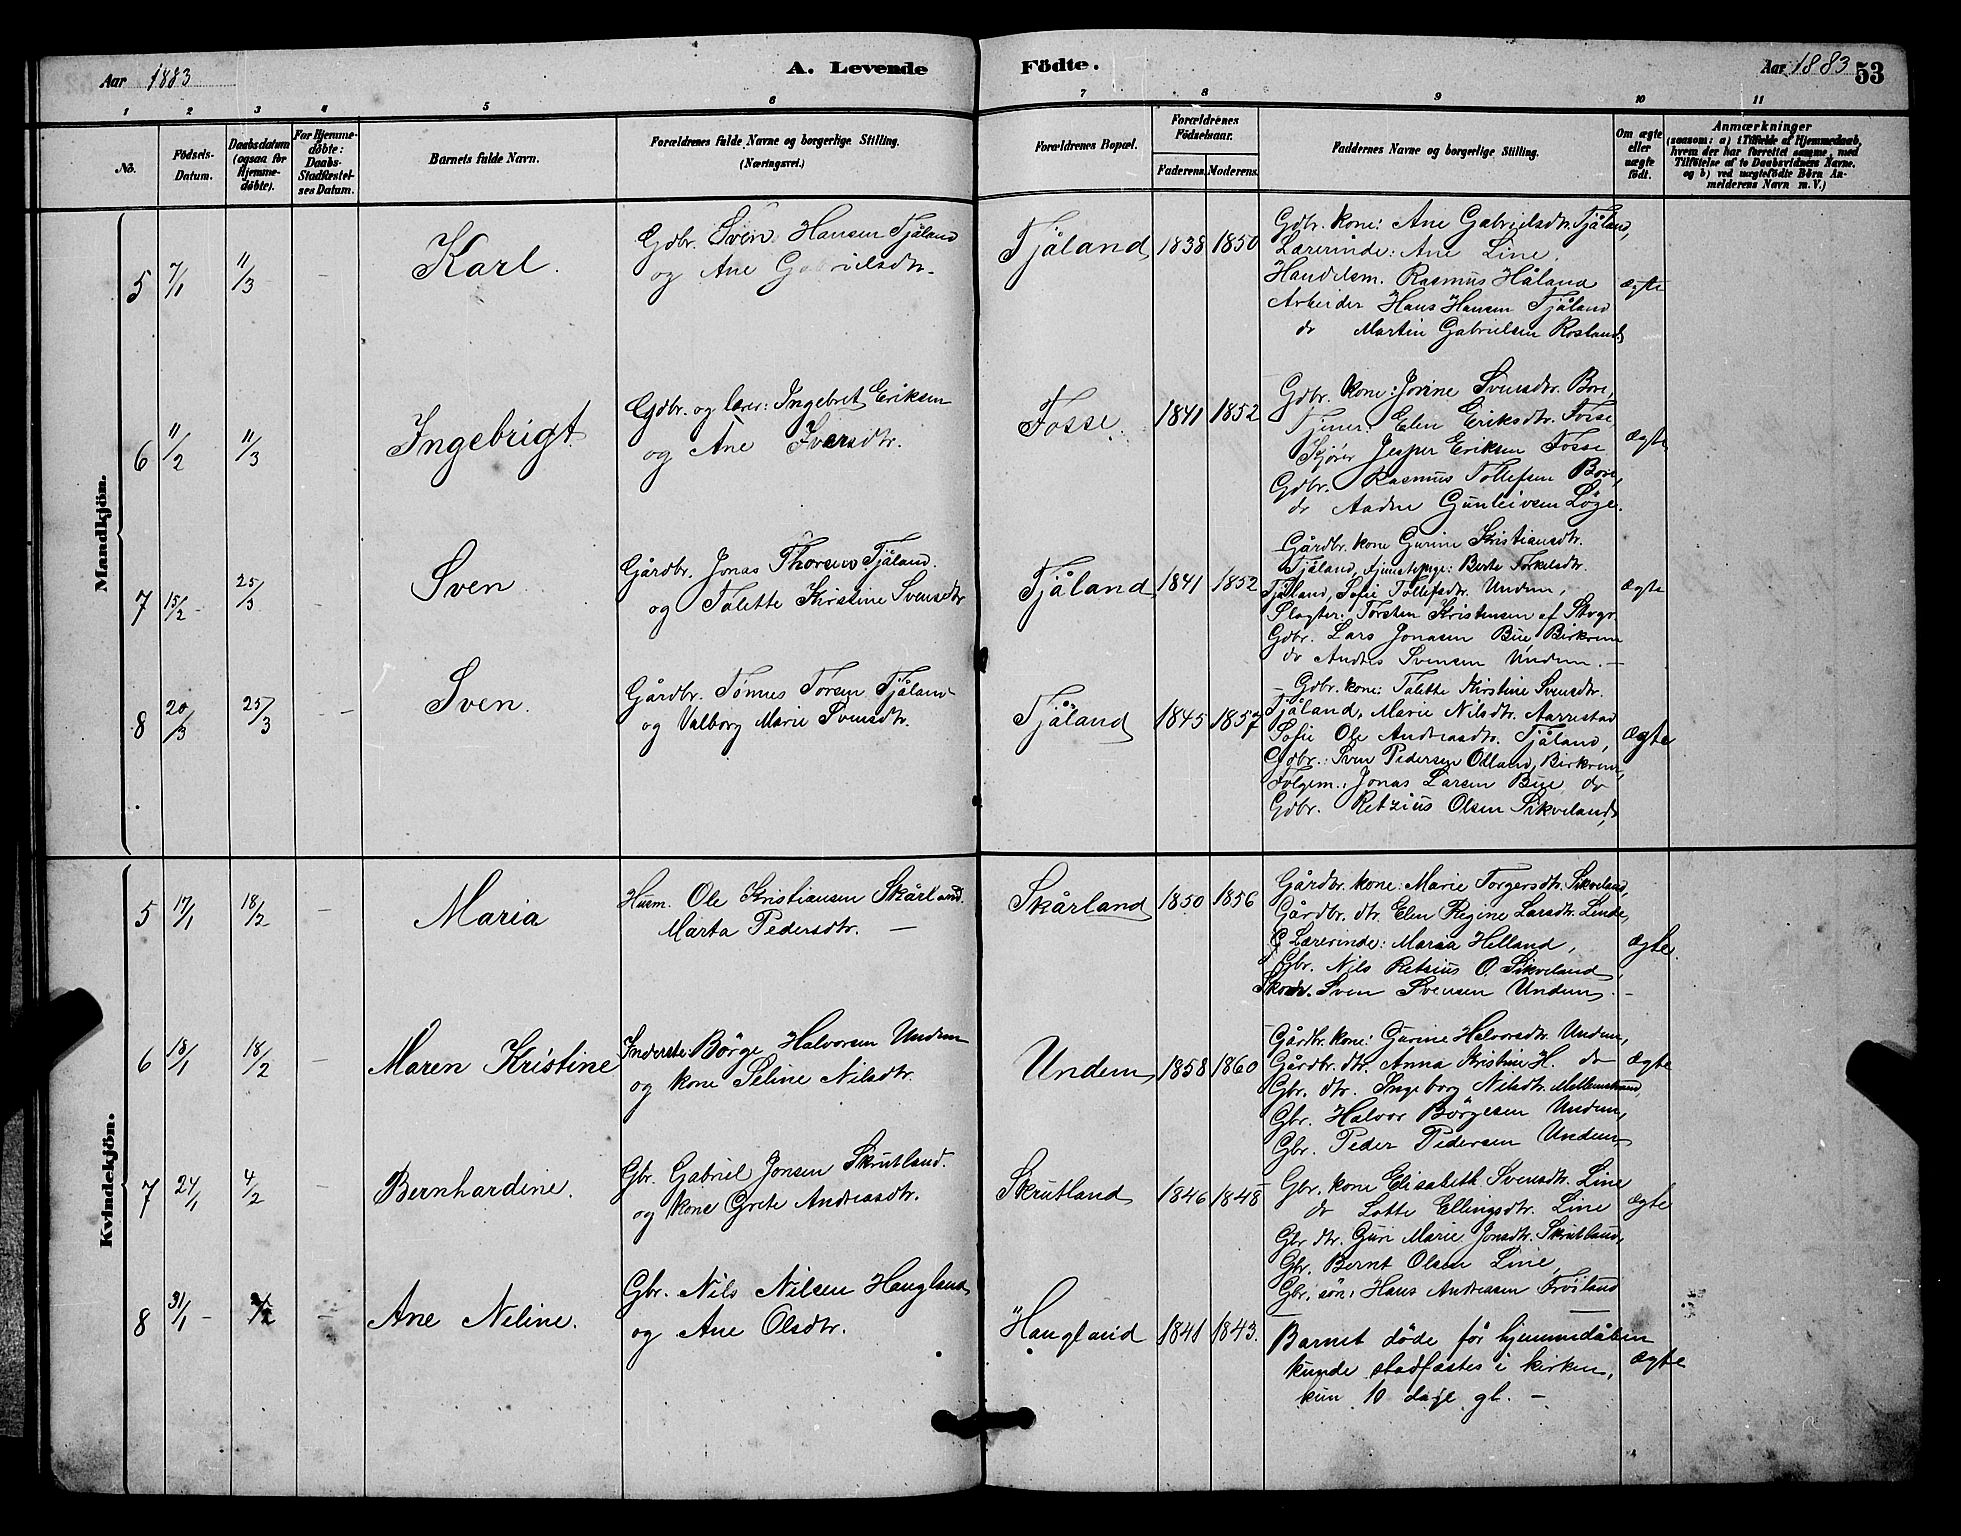 Aar 1883
A. Levende
Födte.
Aar 1883 53
1 2 3 4 5 6 7 8 9 10 11
No.
Födsels-Datum.
Daabsdatum (ogsaa for Hjemme-döbte).
For Hjemme-döbte: Daabs-Stadfæstel-ses Datum.
Barnets fulde Navn.
Forældrenes fulde Navne og borgerlige Stilling. (Næringsvei.)
Forældrenes Bopæl.
Forældrenes Födselsaar.
Faderens. Moderens.
Faddernes Navne og borgerlige Stilling.
Om ægte eller uægte födt.
Anmærkninger
(saasom: a) i Tilfælde af Hjemmedaab, hvem der har forrettet samme, med Tilföielse af to Daabsvidners Navne. og b) ved uægtefödte Börn An-melderens Navn m. V.)
Mandkjön.
5 7/1 11/3 - Karl.
Gdbr. Sven Hansen Tjåland
og Ane Gabrielsdtr.
Tjåland 1838 1850
Gdbr. kone: Ane Gabrielsdtr. Tjåland,
Lærerinde: Ane Line,
Handelsm. Rasmus Håland
Arbeider Hans Hansen Tjåland
do Martin Gabrielsen Rosland,
ægte
6 11/2 11/3 Ingebrigt
Gdbr. og lærer: Ingebret Eriksen
og Ane Iversdtr.
Fosse. 1841 1852
Gdbr. kone: Jorine Svensdtr. Bore,
Tjener: Elen Eriksdtr. Fosse,
Jesper Eriksen Fosse
Gdbr. Rasmus Tollefsen Bore,
do Aadne Gunleivsen Løge.
ægte.
7 15/2 - 25/3 - Sven
Gårdbr. Jonas Thorsen Tjåland.
og Talette Kristine Svensdtr
Tjåland 1841 1852
Gårdbr. kone Gurine Kristiansdtr.
Tjåland, Tjenestepige: Berte Torkelsdtr.
Tjåland, Sofie Tollefsdtr. Undem,
Slagter: Torsten Kristensen af Stvgr.
Gdbr. Lars Jonasen Bue Birkrem
do Andres Svensen Undem. -
ægte
8 20/3 25/3 - Sven.
Gårdbr. Tönnes Torsen Tjåland
og Valborg Marie Svensdtr.
Tjåland 1845 1857
Gdbr. kone: Talette Kirstine Svensdtr.
Tjåland, Marie Nilsdtr. Aarrestad
Sofie Ole Andreasdtr. Tjåland,
Gdbr.: Sven Pedersen Odland, Birkrem,
Folgem.: Jonas Larsen Bue do
Gdbr. Retzius Olsen Sikveland,
ægte
Kvindekjön.
5 17/1 18/2 - Maria
Husm. Ole Kristiansen Skårland.
Marta Pedersdtr. -
Skårland 1850 1856
Gårdbr. kone: Marie Torgersdtr. Sikveland,
Gårdbr. dtr. Elen Regine Larsdtr. Linde,
Lærerinde: Maria Helland,
Gbr. Nils Retzius O. Sikveland,
Skom. Sven Svensen Undem. -
ægte.
6 18/1 18/2 - Maren Kristine
Inderste: Börge Halvorsen Undem
og kone Seline Nilsdtr.
Undem, 1858 1860
Gårdbr. kone: Gurine Halvorsdtr. Undem,
Gårdbr. dtr. Anna Kristine H. do
Gbr. dtr. Ingeborg Nilsdtr. Mellemstrand,
Gbr. Halvor Börgesen Undem,
Gbr. Peder Pedersen Undem,
ægte
7 24/1 4/2 - Bernhardine.
Gbr. Gabriel Jonsen Skrutland.
og kone Grete Andreasdtr.
Skrutland 1846 1848
Gbr. kone Elisabeth Svensdtr. Line
do Lotte Ellingsdtr. Line
Gbr dtr. Guri Marie Jonsdtr. Skrutland,
Gbr. Bernt Olsen Line,
Gbr. sön: Hans Andreasen Fröiland
ægte
8 31/1 - - Ane Neline.
Gbr. Nils Nilsen Haugland
og Ane Olsdtr.
Haugland 1841 1843.
Barnet döde för hjemmedåben
kunde stadfæstes i kirken,
kun 10 dage gl. -
ægte